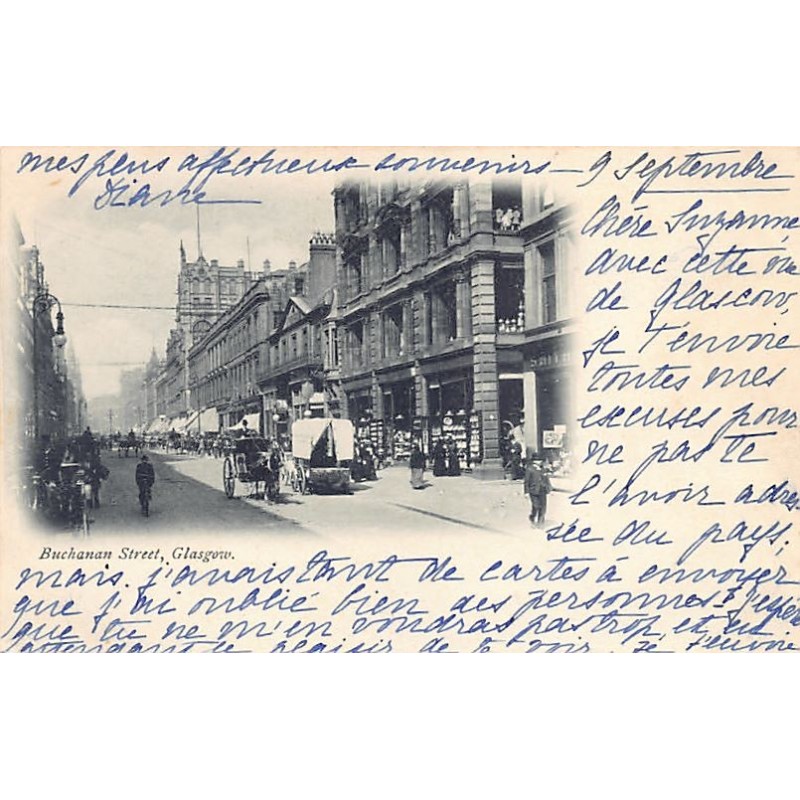 mes plus affectueux souvenirs —
Diane
9 Septembre
Chère Suzanne,
avec cette vue
de Glascow,
je t'envoie
toutes mes
excuses pour
ne pas te
l'avoir adres-
sée du pays;
Buchanan Street, Glasgow.
mais j'avais tant de cartes à envoyer
que j'ai oublié bien des personnes. J'espère
que tu ne m'en voudras pas trop, et en
attendant le plaisir de te voir, je t'envoie